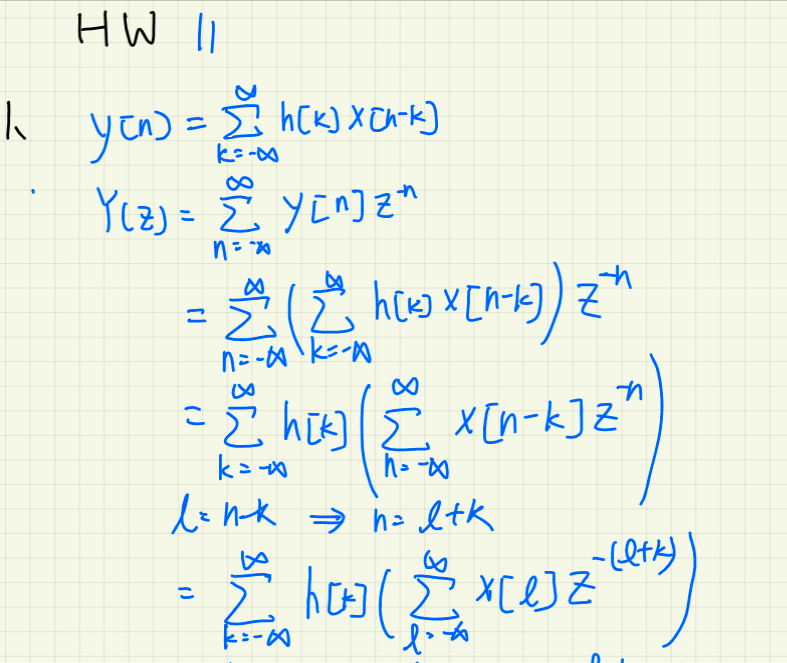 HW 11
1. y[n] = ∑_{k=-∞}^{∞} h[k] x[n-k]
Y(z) = ∑_{n=-∞}^{∞} y[n] z^{-n}
= ∑_{n=-∞}^{∞} ( ∑_{k=-∞}^{∞} h[k] x[n-k] ) z^{-n}
= ∑_{k=-∞}^{∞} h[k] ( ∑_{n=-∞}^{∞} x[n-k] z^{-n} )
l = n-k ⇒ n = l+k
= ∑_{k=-∞}^{∞} h[k] ( ∑_{l=-∞}^{∞} x[l] z^{-(l+k)} )